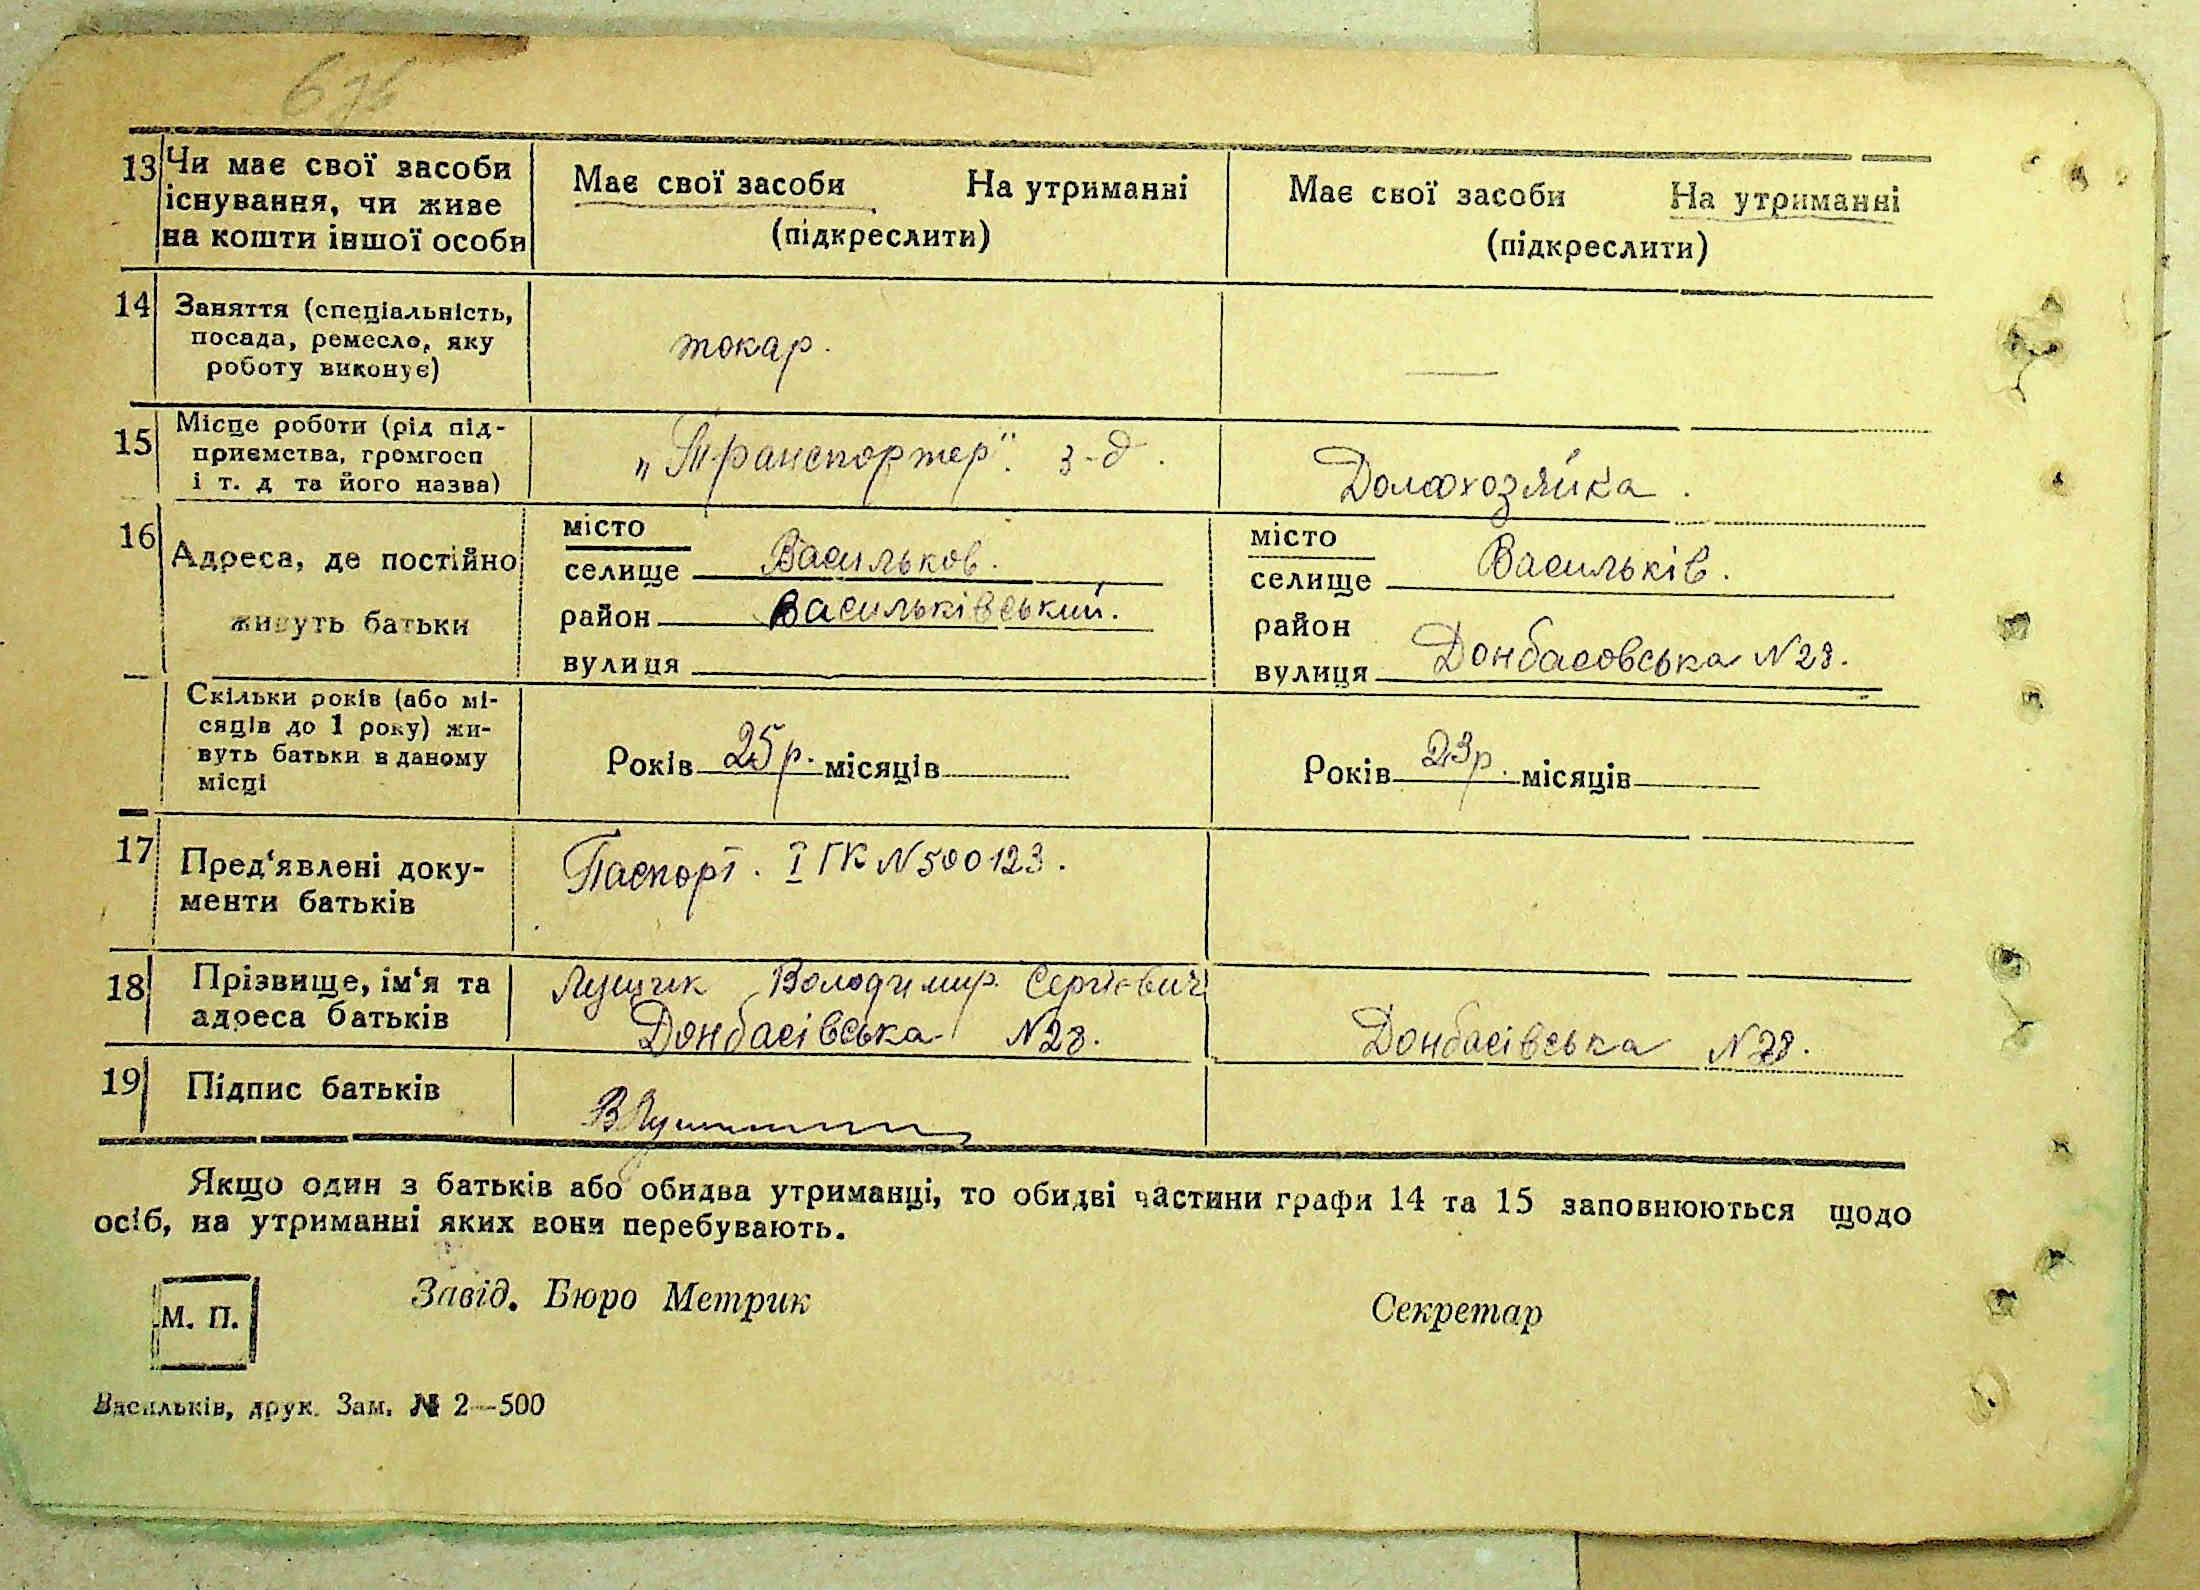 6зв
13 Чи має свої засоби існування, чи живе на кошти іншої особи
Має свої засоби На утриманні
(підкреслити)
Має свої засоби На утриманні
(підкреслити)
14 Заняття (спеціальність,
посада, ремесло, яку
роботу виконує)
токар.
—
15 Місце роботи (рід під-
приємства, громгосп
і т. д та його назва)
„Транспортер". з-д.
Домохозяйка.
16 Адреса, де постійно
живуть батьки
місто
селище Васильков.
район Васильківський.
вулиця
місто
селище Васильків.
район
вулиця Донбасовська №28.
Скільки років (або мі-
сяців до 1 року) жи-
вуть батьки в даному
місці
Років 25р. місяців
Років 23р. місяців
17 Пред‘явлені доку-
менти батьків
Паспорт. І ГК №500123.
18 Прізвище, ім‘я та
адреса батьків
Лущик Володимир Сергієвич
Донбасівська №28.
Донбасівська №28.
19 Підпис батьків
Якщо один з батьків або обидва утриманці, то обидві частини графи 14 та 15 заповнюються щодо
осіб, на утриманні яких вони перебувають.
М. П.
Завід. Бюро Метрик
Секретар
Васильків, друк. Зам. № 2—500